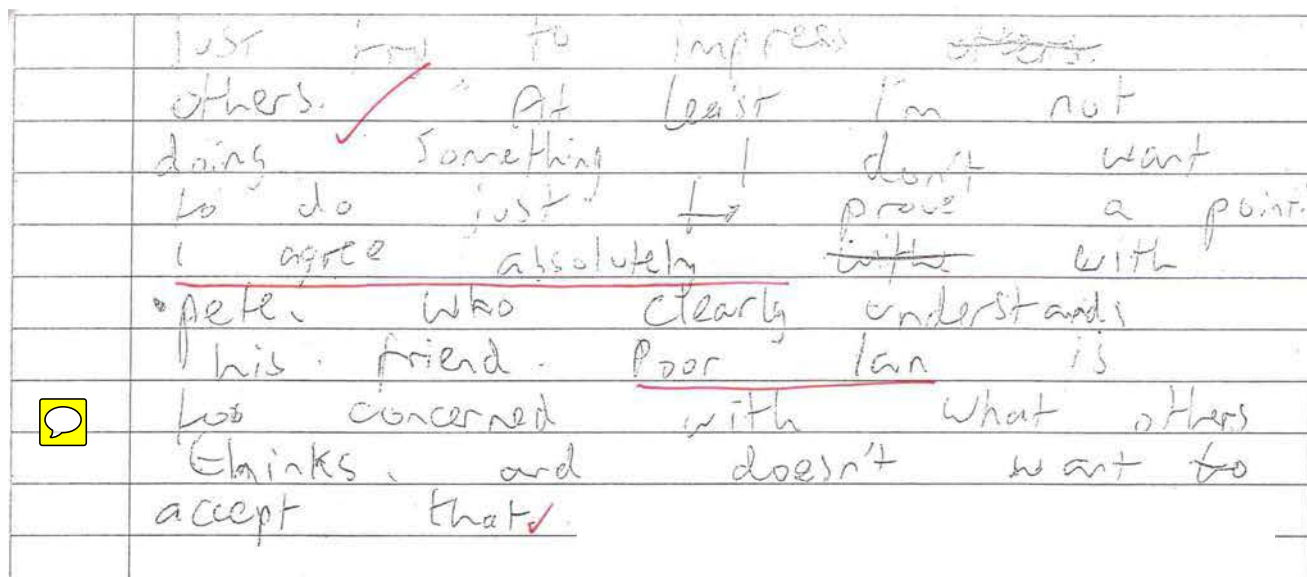 just to impress others.
others. "At least I'm not
doing something I don't want
to do just" to prove a point.
I agree absolutely with with
pete. who clearly understands
his friend. Poor Ian is
too concerned with what others
thinks. and doesn't want to
accept that.